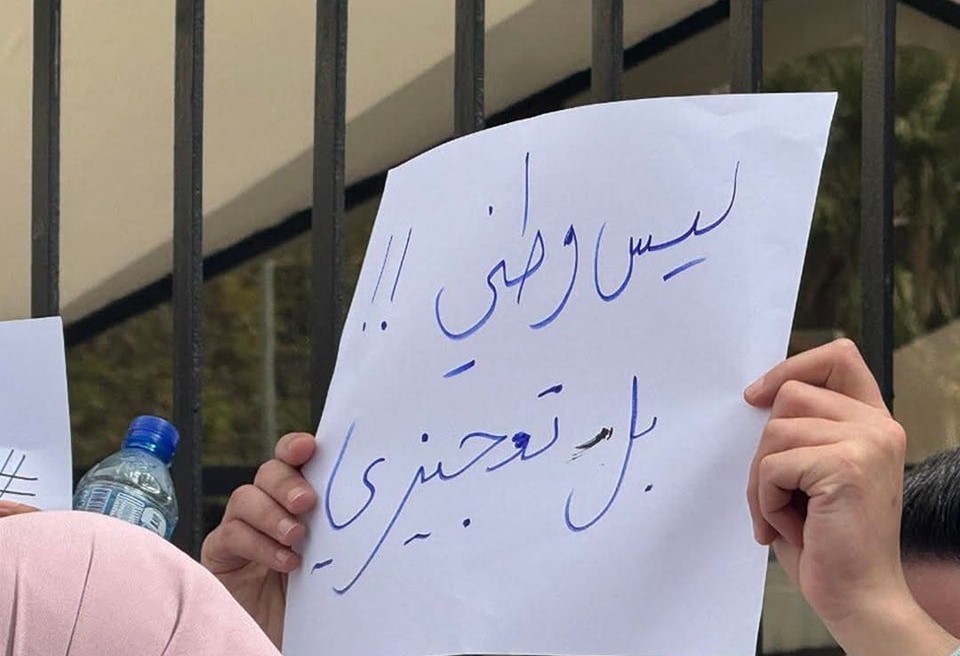 ليس وطني !!
بل تعجيزي
#